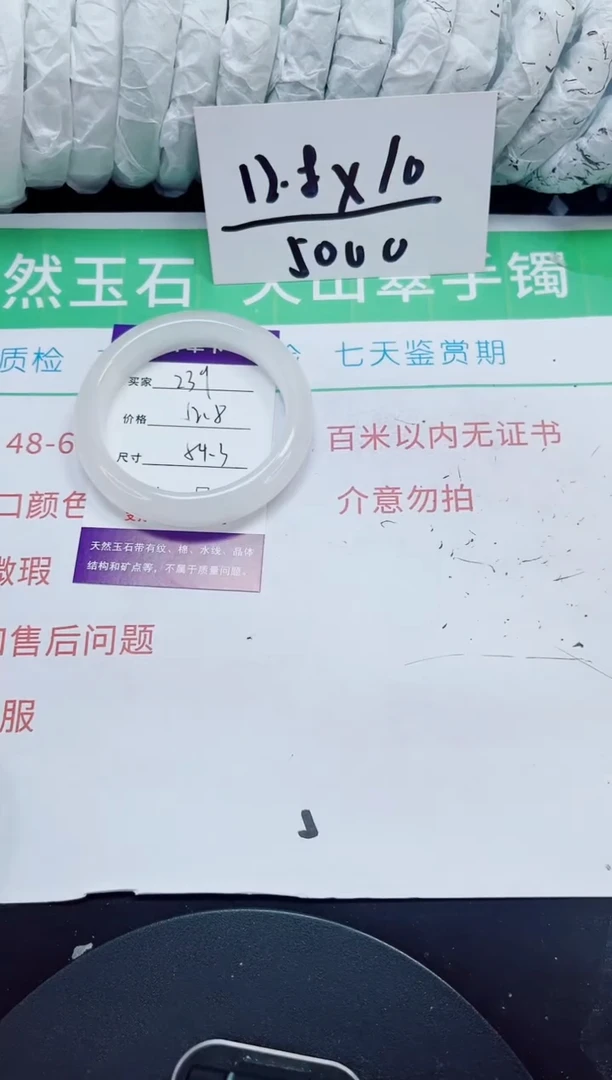 12.8×10
5000
然玉石 天山翠手镯
质检
七天鉴赏期
买家 239
价格 12.8
尺寸 54-5
48-6
百米以内无证书
口颜色
介意勿拍
天然玉石带有纹、棉、水线、晶体
结构和矿点等，不属于质量问题。
微瑕
售后问题
服